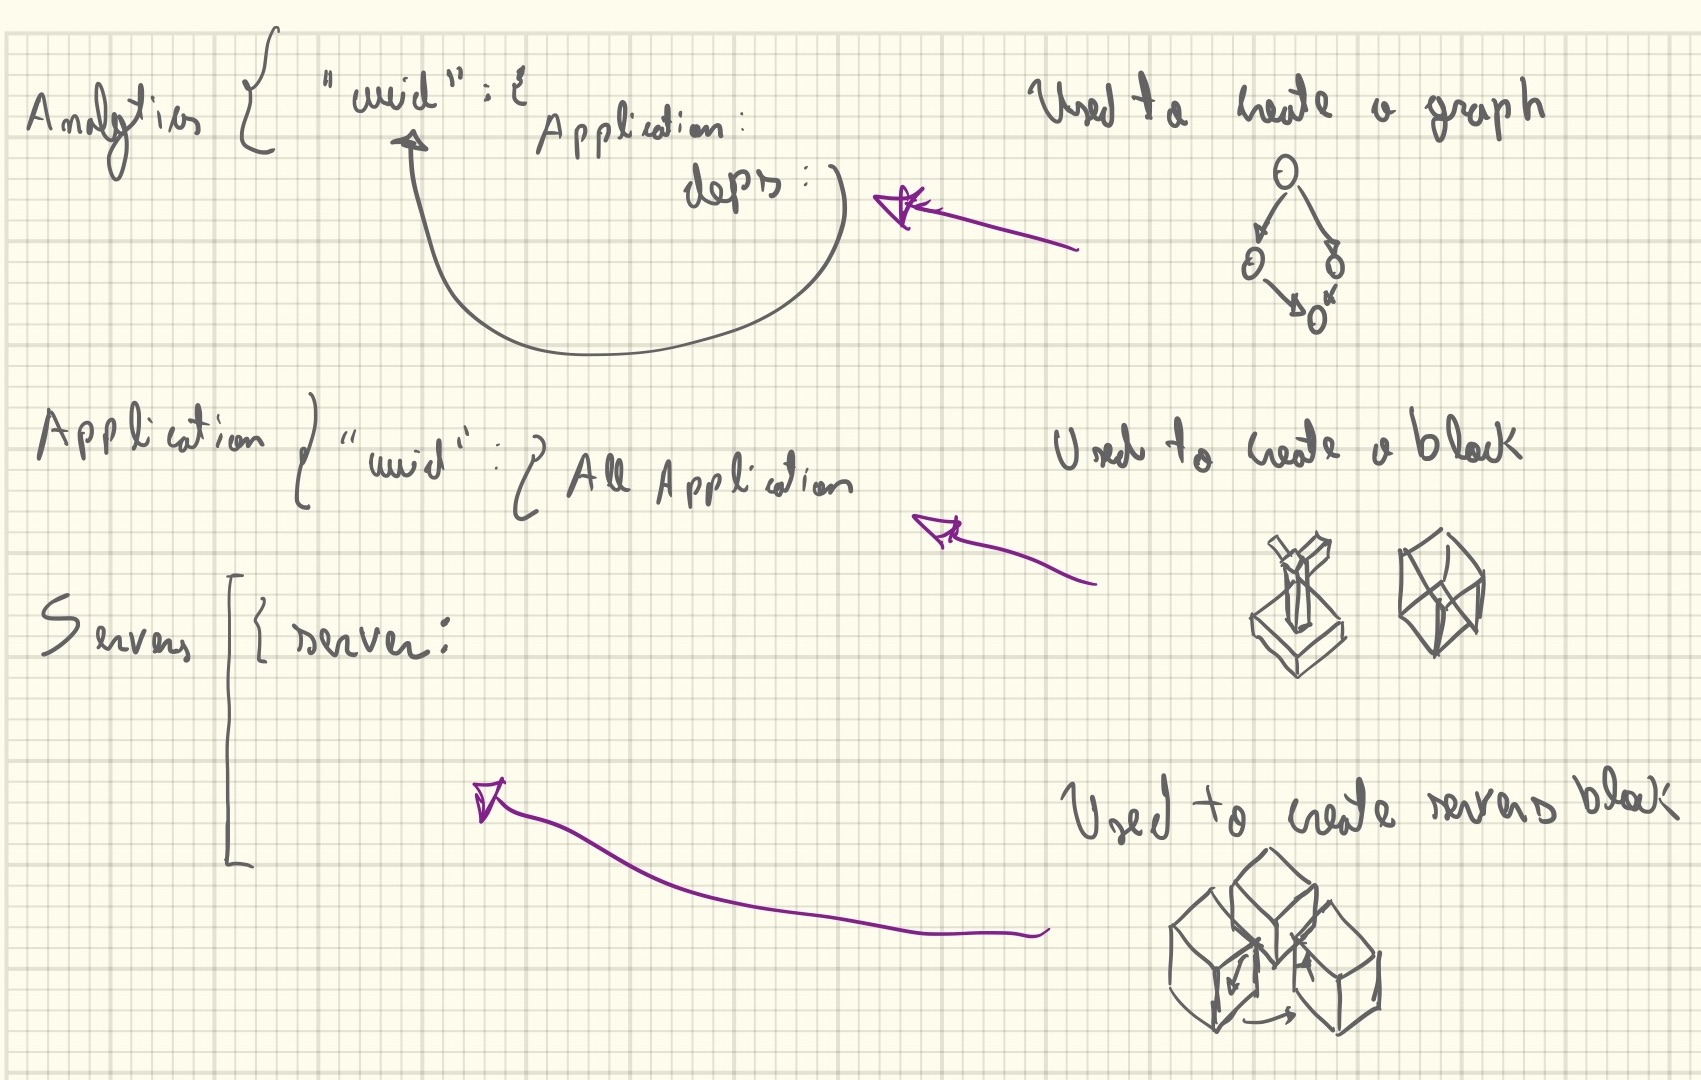 Analytics { "uuid" : {
Application :
deps :
Used to create a graph
Application { "uuid" : { All Application
Used to create a block
Servers [ { server :
Used to create servers block